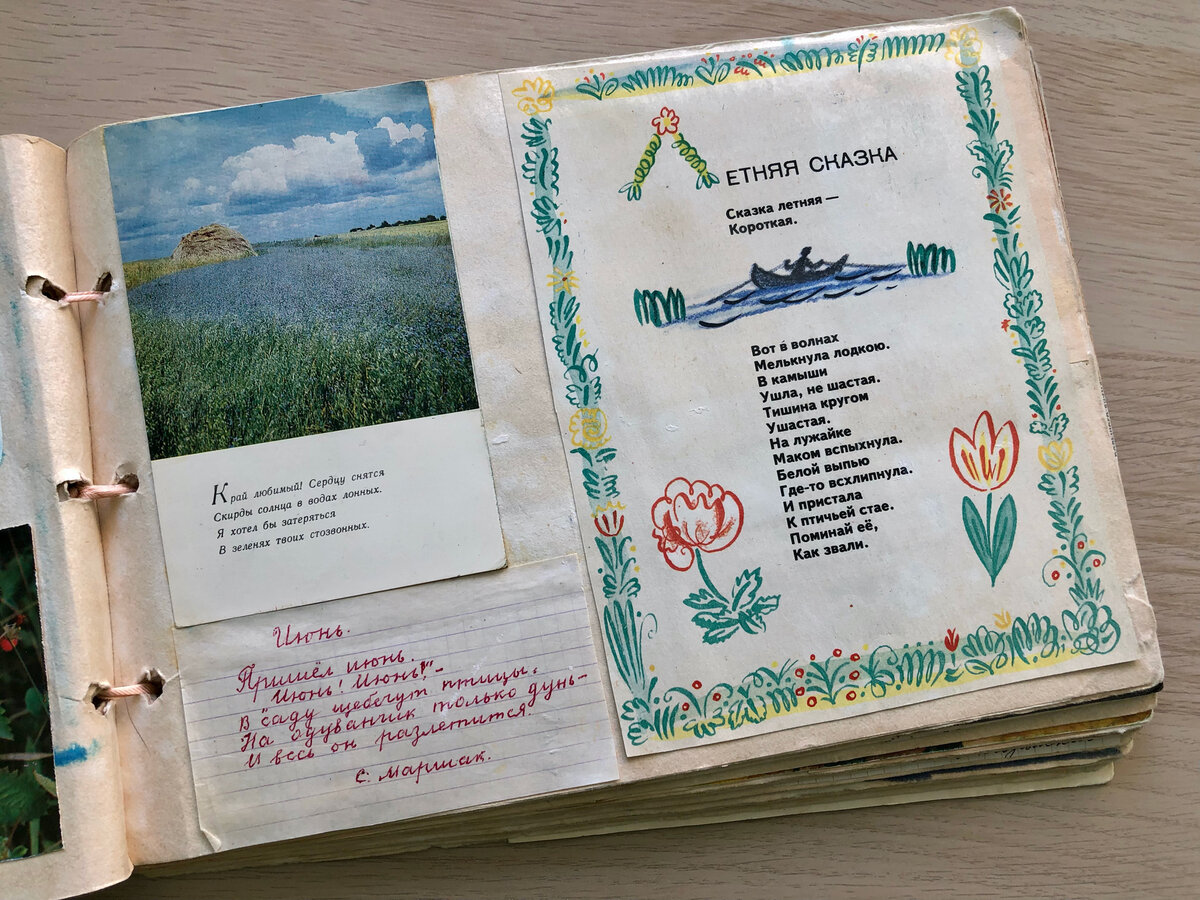 Край любимый! Сердцу снятся
Скирды солнца в водах лонных.
Я хотел бы затеряться
В зеленях твоих стозвонных.
Июнь.
Пришёл июнь.
"Июнь! Июнь!" –
В саду щебечут птицы.
На одуванчик только дунь –
И весь он разлетится.
С. Маршак.
ЛЕТНЯЯ СКАЗКА
Сказка летняя —
Короткая.
Вот в волнах
Мелькнула лодкою.
В камыши
Ушла, не шастая.
Тишина кругом
Ушастая.
На лужайке
Маком вспыхнула.
Белой выпью
Где-то всхлипнула.
И пристала
К птичьей стае.
Поминай её,
Как звали.